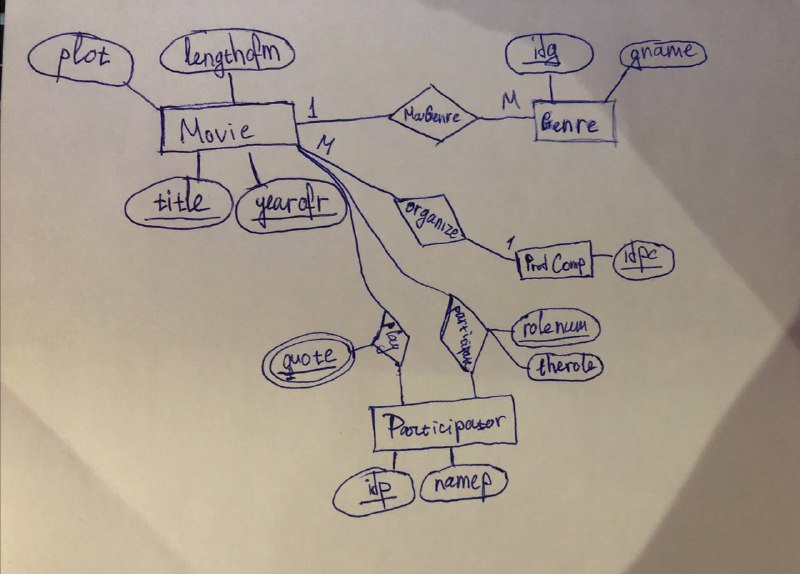 plot
lengthofm
idg
gname
Movie
1
MovGenre
M
Genre
M
title
yearofr
organize
1
Prod Comp
idpc
quote
play
participate
rolenum
therole
Participator
idp
namep